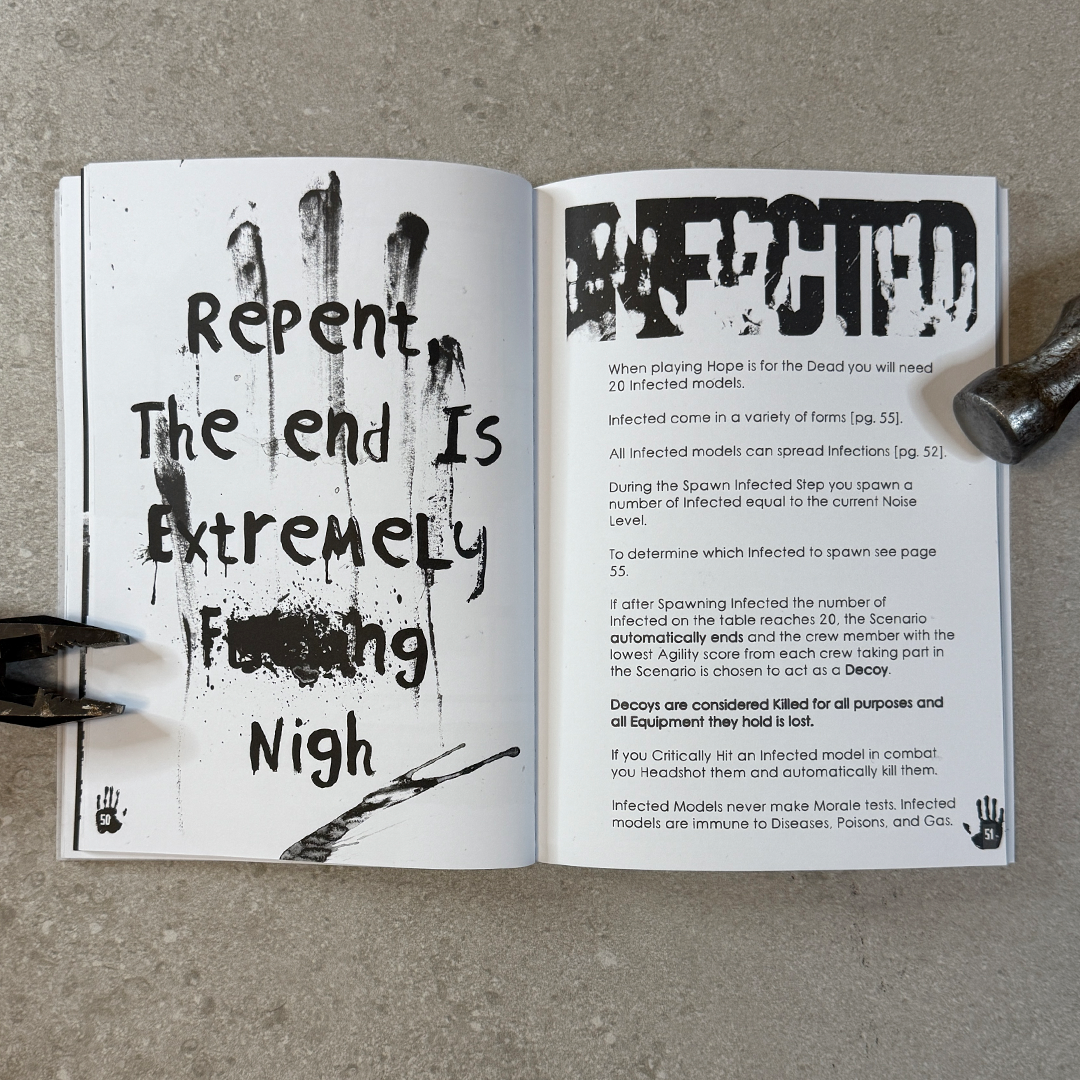 Repent,
The end Is
Extremely
F    ng
Nigh
50
INFECTED
When playing Hope is for the Dead you will need
20 Infected models.
Infected come in a variety of forms [pg. 55].
All Infected models can spread Infections [pg. 52].
During the Spawn Infected Step you spawn a
number of Infected equal to the current Noise
Level.
To determine which Infected to spawn see page
55.
If after Spawning Infected the number of
Infected on the table reaches 20, the Scenario
automatically ends and the crew member with the
lowest Agility score from each crew taking part in
the Scenario is chosen to act as a Decoy.
Decoys are considered Killed for all purposes and
all Equipment they hold is lost.
If you Critically Hit an Infected model in combat
you Headshot them and automatically kill them.
Infected Models never make Morale tests. Infected
models are immune to Diseases, Poisons, and Gas.
51